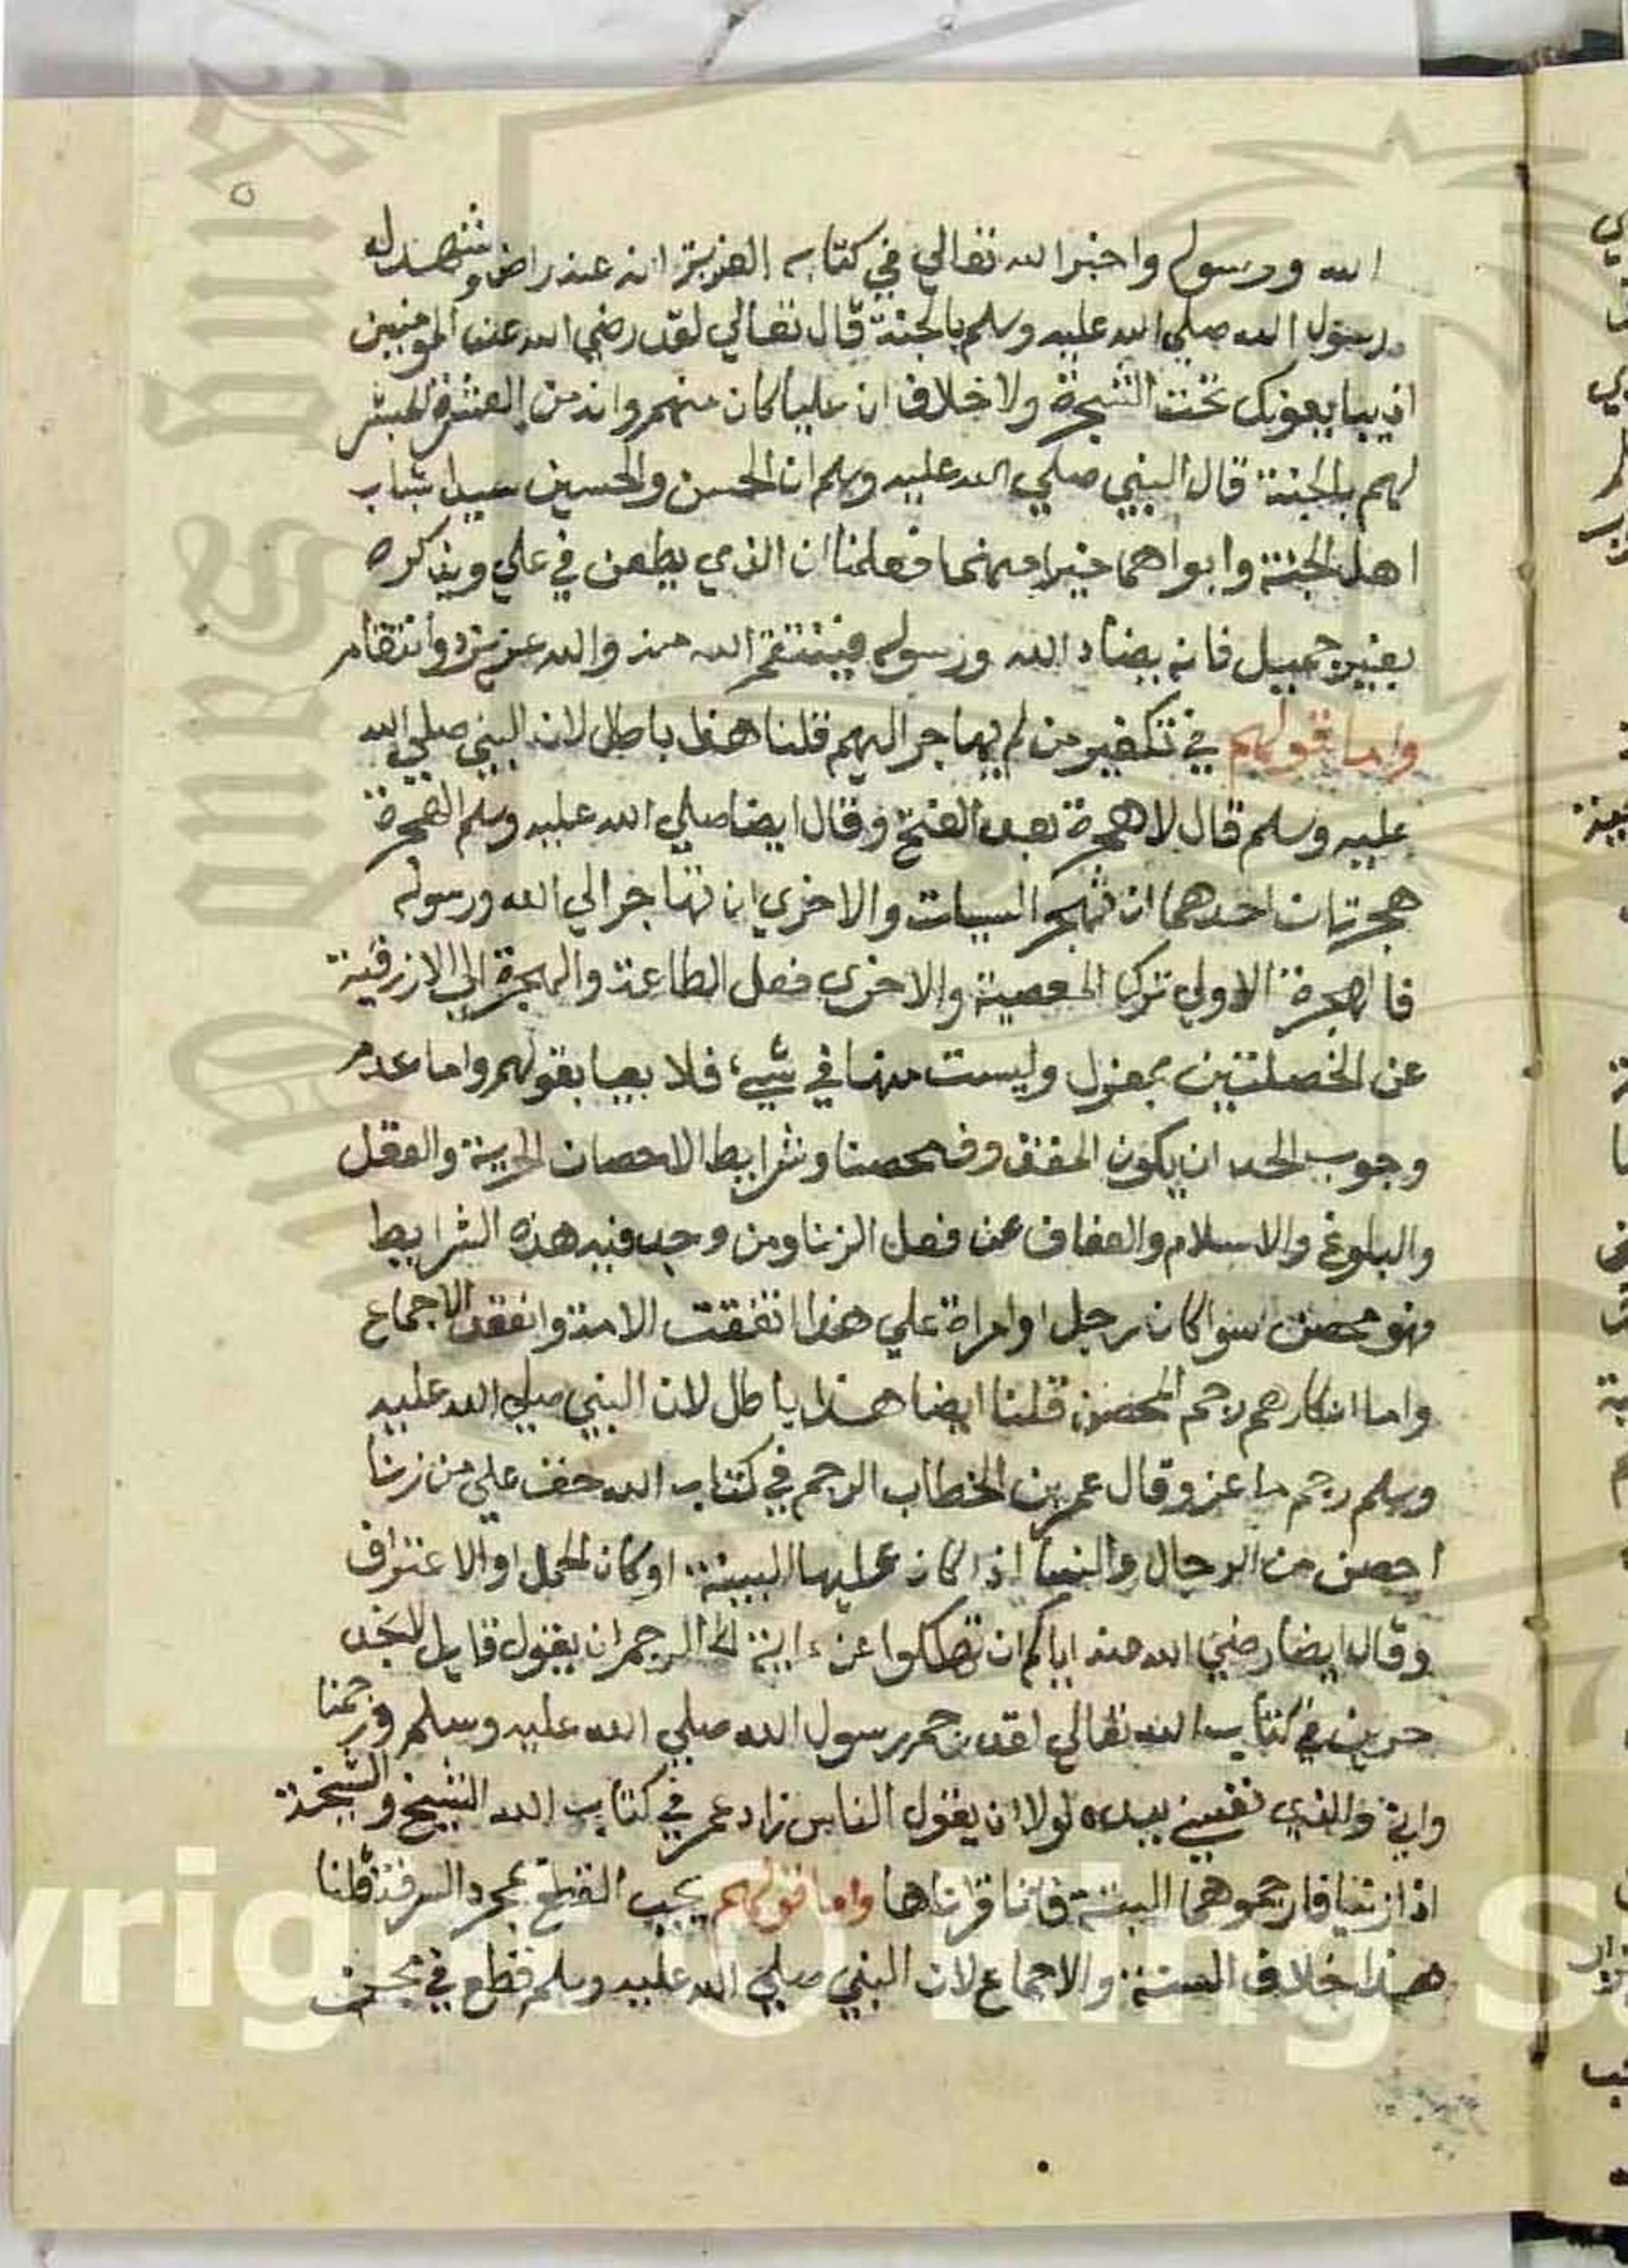 ٥
الله ورسوله واخبر الله تعالي في كتابه العزيز انه عنه راض وشهد له
رسول الله صلي الله عليه وسلم بالجنة قال تعالي لقد رضي الله عن المومنين
اذ يبايعونك تحت الشجرة ولا خلاف ان عليا كان منهم وانه من العشرة المبشر
لهم بالجنة قال النبي صلي الله عليه وسلم ان الحسن والحسين سيدا شباب
اهل الجنة وابواهما خيرا منهما فعلمنا ان الذي يطعن في علي ويذكره
بغير جميل فانه يضاد الله ورسوله فينتقم الله منه والله عزيز ذو انتقام
واما قولهم في تكفير من لم يهاجر اليهم قلنا هذا باطل لان النبي صلي الله
عليه وسلم قال لا هجرة بعد الفتح وقال ايضا صلي الله عليه وسلم الهجرة
هجرتان احدهما ان تهجر السيات والاخري ان تهاجر الي الله ورسوله
فالهجرة الاولي ترك المعصية والاخري فعل الطاعة والهجرة الي الازرقية
عن الخصلتين بمعزل وليست منها في شيء فلا يعبا بقولهم واما عدم
وجوب الحد ان يكون المقذوف محصنا وشرايط الاحصان الحرية والعقل
والبلوغ والاسلام والعفاف عن فعل الزنا ومن وجد فيه هذه الشرايط
فهو محصن سوا كان رجل او امراة علي هذا اتفقت الامة وانعقد الاجماع
واما انكارهم رجم المحصن قلنا ايضا هذا باطل لان النبي صلي الله عليه
وسلم رجم ماعز وقال عمر بن الخطاب الرجم في كتاب الله حق علي من زنا
احصن من الرجال والنسا اذا كان عليها البينة او كان الحمل او الاعتراف
وقال ايضا رضي الله عنه اياكم ان تهلكوا عن ءاية الرجم ان يقول قايل لا نجد
حدين في كتاب الله تعالي لقد رجم رسول الله صلي الله عليه وسلم ورجمنا
واني والذي نفسي بيده لولا ان يقول الناس زاد عمر في كتاب الله الشيخ والشيخة
اذا زنيا فارجموهما البتة فانا قراناها واما قولهم يجب القطع بمجرد السرقة قلنا
هذا خلاف السنة والاجماع لان النبي صلي الله عليه وسلم قطع في مجن